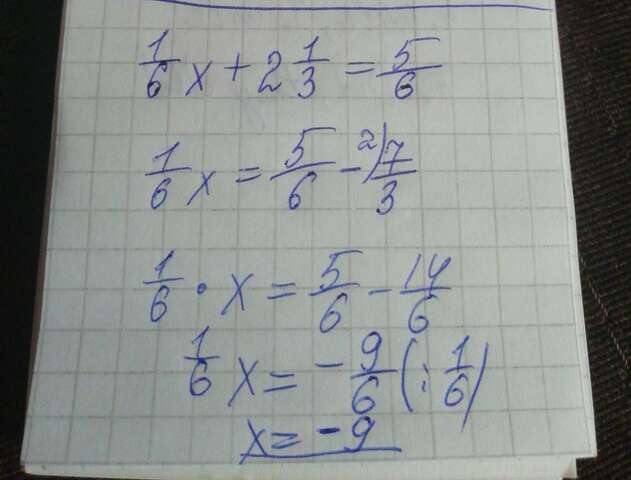 1/6 x + 2 1/3 = 5/6
1/6 x = 5/6 - 2) 7/3
1/6 · x = 5/6 - 14/6
1/6 x = - 9/6 (: 1/6)
x = - 9